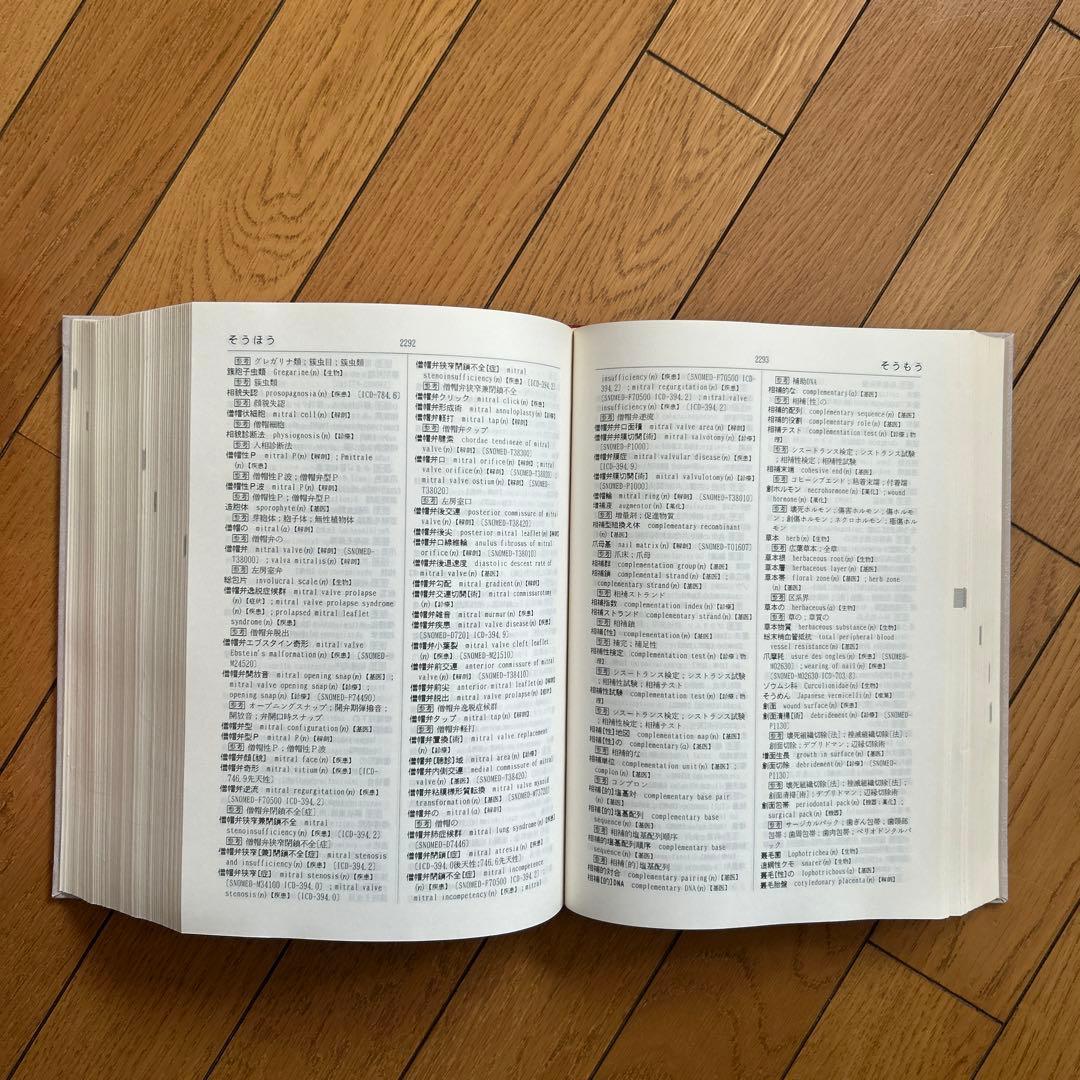 そうほう
2292
参考 グレガリナ類；簇虫目；簇虫類
簇胞子虫類 Gregarine(n)【生物】
参考 簇虫類
相貌失認 prosopagnosia(n)【疾患】〔ICD-784.6〕
参考 顔貌失認
僧帽状細胞 mitral cell(n)【解剖】
参考 僧帽細胞
相貌診断法 physiognosis(n)【診療】
参考 人相診断法
僧帽性Ｐ mitral P(n)【解剖】；Pmitrale
(n)【疾患】
参考 僧帽性Ｐ波；僧帽弁型Ｐ
僧帽性Ｐ波 mitral P(n)【解剖】
参考 僧帽性Ｐ；僧帽弁型Ｐ
造胞体 sporophyte(n)【基医】
参考 芽胞体；胞子体；無性植物体
僧帽の mitral(a)【解剖】
参考 僧帽弁の
僧帽弁 mitral valve(n)【解剖】〔SNOMED-
T38000〕；valva mitralis(n)【解剖】
参考 左房室弁
総包片 involucral scale(n)【生物】
僧帽弁逸脱症候群 mitral valve prolapse
(n)【症状】；mitral valve prolapse syndrome
(n)【疾患】；prolapsed mitral leaflet
syndrome(n)【疾患】
参考 僧帽弁脱出
僧帽弁エブスタイン奇形 mitral valve
Ebstein's malformation(n)【疾患】〔SNOMED-
M24520〕
僧帽弁開放音 mitral opening snap(n)【基医】；
mitral valve opening snap(n)【診療】；
opening snap(n)【診療】〔SNOMED-F74490〕
参考 オープニングスナップ；開弁期弾撥音；
開放音；弁開口時スナップ
僧帽弁型 mitral configuration(n)【基医】
僧帽弁型Ｐ mitral P(n)【解剖】
参考 僧帽性Ｐ；僧帽性Ｐ波
僧帽弁顔[貌] mitral face(n)【疾患】
僧帽弁奇形 mitral vitium(n)【疾患】〔ICD-
746.9先天性〕
僧帽弁逆流 mitral regurgitation(n)【疾患】
〔SNOMED-F70500 ICD-394.2〕
参考 僧帽弁閉鎖不全[症]
僧帽弁狭窄兼閉鎖不全 mitral
stenoinsufficiency(n)【疾患】〔ICD-394.2〕
参考 僧帽弁狭窄閉鎖不全[症]
僧帽弁狭窄[兼]閉鎖不全[症] mitral stenosis
and insufficiency(n)【疾患】〔ICD-394.2〕
僧帽弁狭窄[症] mitral stenosis(n)【疾患】
〔SNOMED-M34100 ICD-394.0〕；mitral valve
stenosis(n)【疾患】〔ICD-394.0〕
僧帽弁狭窄閉鎖不全[症] mitral
stenoinsufficiency(n)【疾患】〔ICD-394.2〕
参考 僧帽弁狭窄兼閉鎖不全
僧帽弁クリック mitral click(n)【疾患】
僧帽弁形成術 mitral annuloplasty(n)【診療】
僧帽弁軽打 mitral tap(n)【解剖】
参考 僧帽弁タップ
僧帽弁腱索 chordae tendineae of mitral
valve(n)【解剖】〔SNOMED-T38300〕
僧帽弁口 mitral orifice(n)【解剖】；mitral
valve orifice(n)【解剖】〔SNOMED-T38020〕；
mitral valve ostium(n)【解剖】〔SNOMED-
T38020〕
参考 左房室口
僧帽弁後交連 posterior commissure of mitral
valve(n)【解剖】〔SNOMED-T38420〕
僧帽弁後尖 posterior mitral leaflet(n)【解剖】
僧帽弁口線維輪 anulus fibrosus of mitral
orifice(n)【解剖】〔SNOMED-T38010〕
僧帽弁後退速度 diastolic descent rate of
mitral valve(n)【基医】
僧帽弁勾配 mitral gradient(n)【解剖】
僧帽弁交連切開[術] mitral commissurotomy
(n)【診療】
僧帽弁雑音 mitral murmur(n)【疾患】
僧帽弁疾患 mitral valve disease(n)【疾患】
〔SNOMED-D7201 ICD-394.9〕
僧帽弁小葉裂 mitral valve cleft leaflet
(n)【疾患】〔SNOMED-M21510〕
僧帽弁前交連 anterior commissure of mitral
valve(n)【解剖】〔SNOMED-T38410〕
僧帽弁前尖 anterior mitral leaflet(n)【解剖】
僧帽弁脱出 mitral valve prolapse(n)【症状】
参考 僧帽弁逸脱症候群
僧帽弁タップ mitral tap(n)【解剖】
参考 僧帽弁軽打
僧帽弁置換[術] mitral valve replacement
(n)【診療】
僧帽弁[聴診]域 mitral area(n)【診療】
僧帽弁内側交連 medial commissure of mitral
valve(n)【基医】〔SNOMED-T38420〕
僧帽弁粘膜様形質転換 mitral valve myxoid
transformation(n)【基医】〔SNOMED-M73720〕
僧帽弁の mitral(a)【解剖】
参考 僧帽の
僧帽弁肺症候群 mitral lung syndrome(n)【疾患】
〔SNOMED-D7446〕
僧帽弁閉鎖[症] mitral atresia(n)【疾患】
〔ICD-394.0後天性;746.6先天性〕
僧帽弁閉鎖不全[症] mitral incompetence
(n)【疾患】〔SNOMED-F70500 ICD-394.2〕；
mitral incompetency(n)【疾患】；mitral
2293
そうもう
insufficiency(n)【疾患】〔SNOMED-F70500 ICD-
394.2〕；mitral regurgitation(n)【疾患】
〔SNOMED-F70500 ICD-394.2〕；mitral valve
insufficiency(n)【疾患】〔ICD-394.2〕
参考 僧帽弁逆流
僧帽弁弁口面積 mitral valve area(n)【解剖】
僧帽弁弁膜切開[術] mitral valvotomy(n)【診療】
〔SNOMED-P1000〕
僧帽弁膜症 mitral valvular disease(n)【疾患】
〔ICD-394.9〕
僧帽弁膜切開[術] mitral valvulotomy(n)【診療】
〔SNOMED-P1000〕
僧帽輪 mitral ring(n)【解剖】〔SNOMED-T38010〕
増補液 augmentor(n)【薬化】
参考 増量剤；促進物質
相補型組換え体 complementary recombinant
(n)【基医】
爪母基 nail matrix(n)【解剖】〔SNOMED-T01607〕
参考 爪床；爪母
相補群 complementation group(n)【基医】
相補鎖 complemental strand(n)【基医】；
complementary strand(n)【基医】
参考 相補ストランド
相補指数 complementation index(n)【診療】
相補ストランド complementary strand(n)【基医】
参考 相補鎖
相補[性] complementation(n)【基医】
参考 補充；補足性
相補性検定 complementation test(n)【診療；物
理】
参考 シス－トランス検定；シストランス試験
；相補性試験；相補テスト
相補性試験 complementation test(n)【診療；物
理】
参考 シス－トランス検定；シストランス試験
；相補性検定；相補テスト
相補[性]地図 complementation map(n)【基医】
相補[性]の complementary(a)【基医】
参考 相補的な
相補単位 complementation unit(n)【基医】；
complon(n)【基医】
参考 コンプロン
相補[的]塩基対 complementary base pair
(n)【基医】
相補[的]塩基配列 complementary base
sequence(n)【基医】
参考 相補的塩基配列順序
相補的塩基配列順序 complementary base
sequence(n)【基医】
参考 相補[的]塩基配列
相補的対合 complementary pairing(n)【基医】
相補[的]DNA complementary DNA(n)【基医】
参考 補助DNA
相補的な complementary(a)【基医】
参考 相補[性]の
相補的配列 complementary sequence(n)【基医】
相補的役割 complementary role(n)【基医】
相補テスト complementation test(n)【診療；物
理】
参考 シス－トランス検定；シストランス試験
；相補性検定；相補性試験
相補末端 cohesive end(n)【基医】
参考 コヒーシブエンド；粘着末端；付着端
創ホルモン necrohormone(n)【薬化】；wound
hormone(n)【薬化】
参考 壊死ホルモン；傷害ホルモン；傷ホルモ
ン；創傷ホルモン；ネクロホルモン；癒傷ホル
モン
草本 herb(n)【生物】
参考 広葉草本；全草
草本根 herbaceous root(n)【基医】
草本層 herbaceous layer(n)【基医】
草本帯 floral zone(n)【基医】；herb zone
(n)【基医】
参考 区系界
草本の herbaceous(a)【生物】
参考 草の；草質の
草本物質 herbaceous substance(n)【生物】
総末梢血管抵抗 total peripheral blood
vessel resistance(n)【基医】
爪摩耗 usure des ongles(n)【疾患】〔SNOMED-
M02630〕；wearing of nail(n)【疾患】
〔SNOMED-M02630 ICD-703.8〕
ゾウムシ科 Curculionidae(n)【生物】
そうめん Japanese vermicelli(n)【産業】
創面 wound surface(n)【疾患】
創面清掃[術] debridement(n)【診療】〔SNOMED-
P1130〕
参考 壊死組織切除[法]；挫滅組織切除[法]
；創面切除；デブリドマン；辺縁切除術
増面生長 growth in surface(n)【基医】
創面切除 debridement(n)【診療】〔SNOMED-
P1130〕
参考 壊死組織切除[法]；挫滅組織切除[法]；
創面清掃[術]；デブリドマン；辺縁切除術
創面包帯 periodontal pack(n)【機器；薬化】；
surgical pack(n)【機器】
参考 サージカルパック；歯ぎん包帯；歯頸部
包帯；歯周包帯；歯肉包帯；ペリオドンタルパ
ック
叢毛菌 Lophotrichea(n)【生物】
造網性クモ snarer(n)【生物】
叢毛[性]の lophotrichous(a)【基医】
叢毛胎盤 cotyledonary placenta(n)【基医】